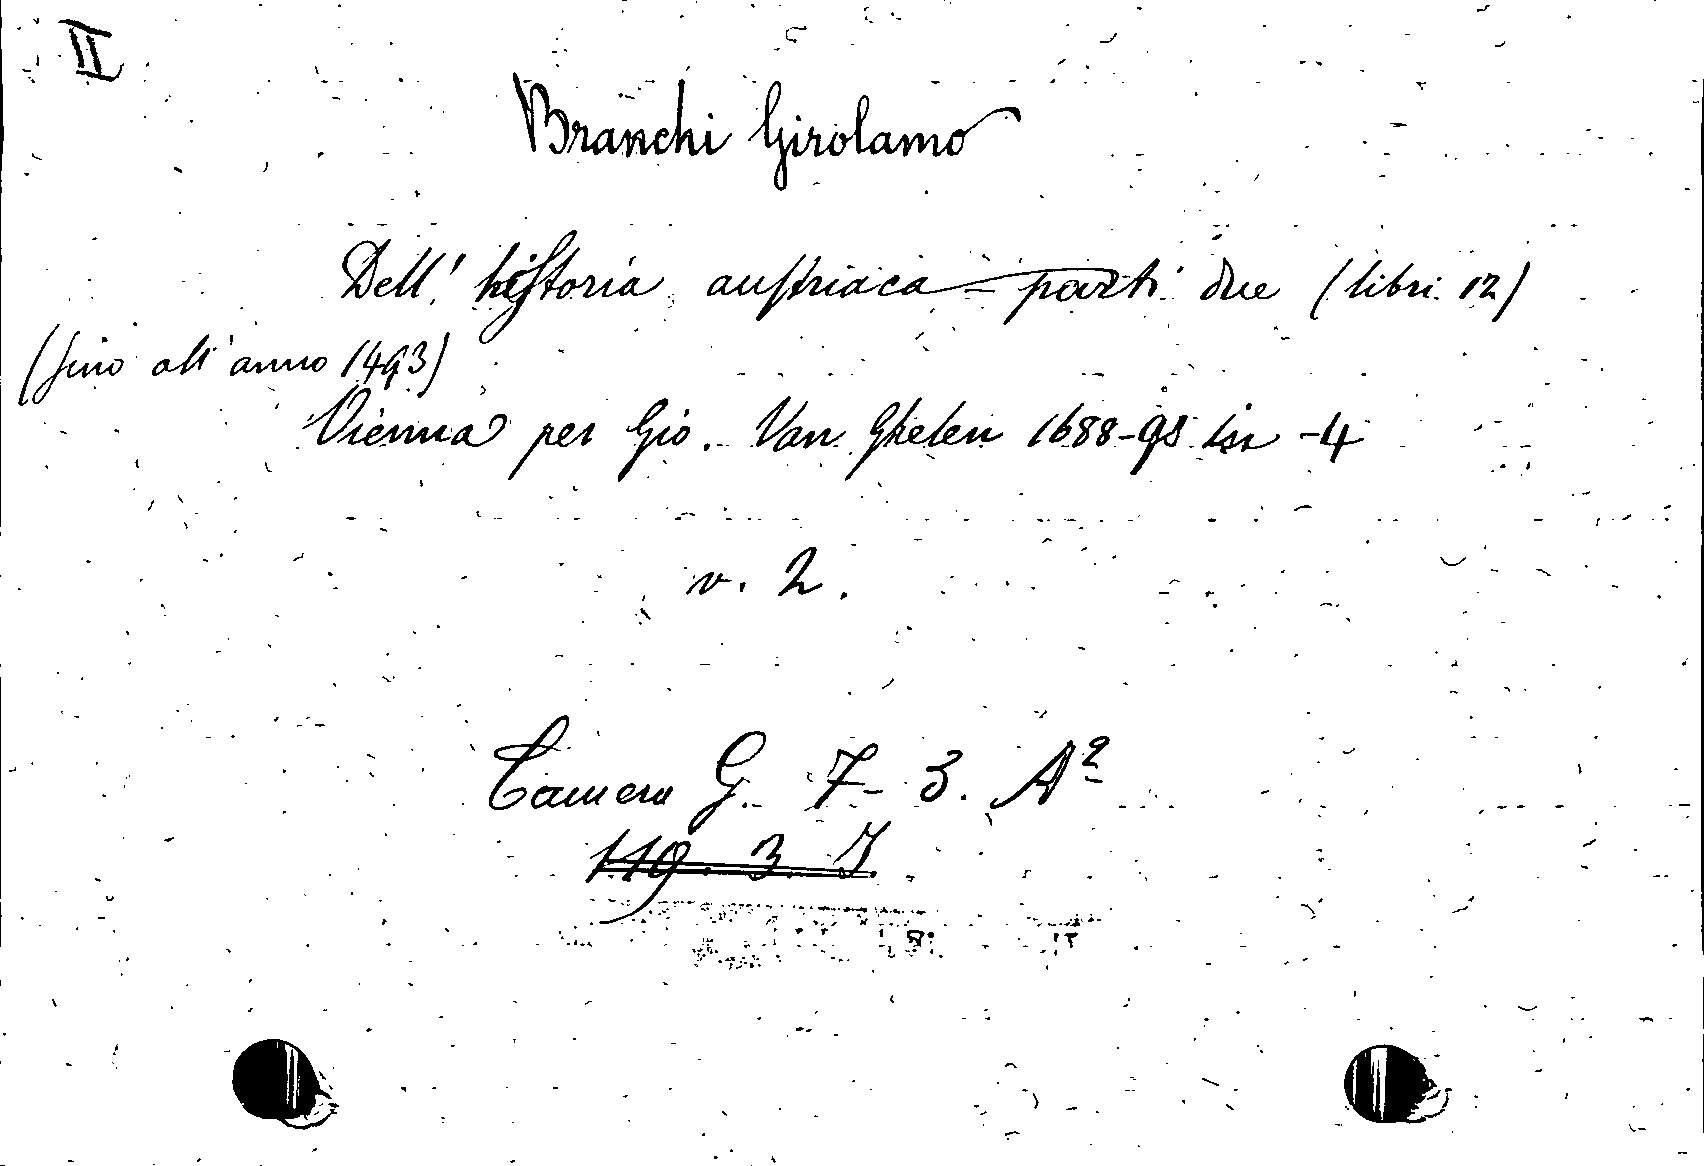 II
Branchi Girolamo
Dell' historia austriaca - parti due (libri 12)
(fino all'anno 1493)
Vienna per Gio. Van Ghelen 1688-98 in -4
v. 2.
Camera G. 7- 3. A2
119. 3. J.